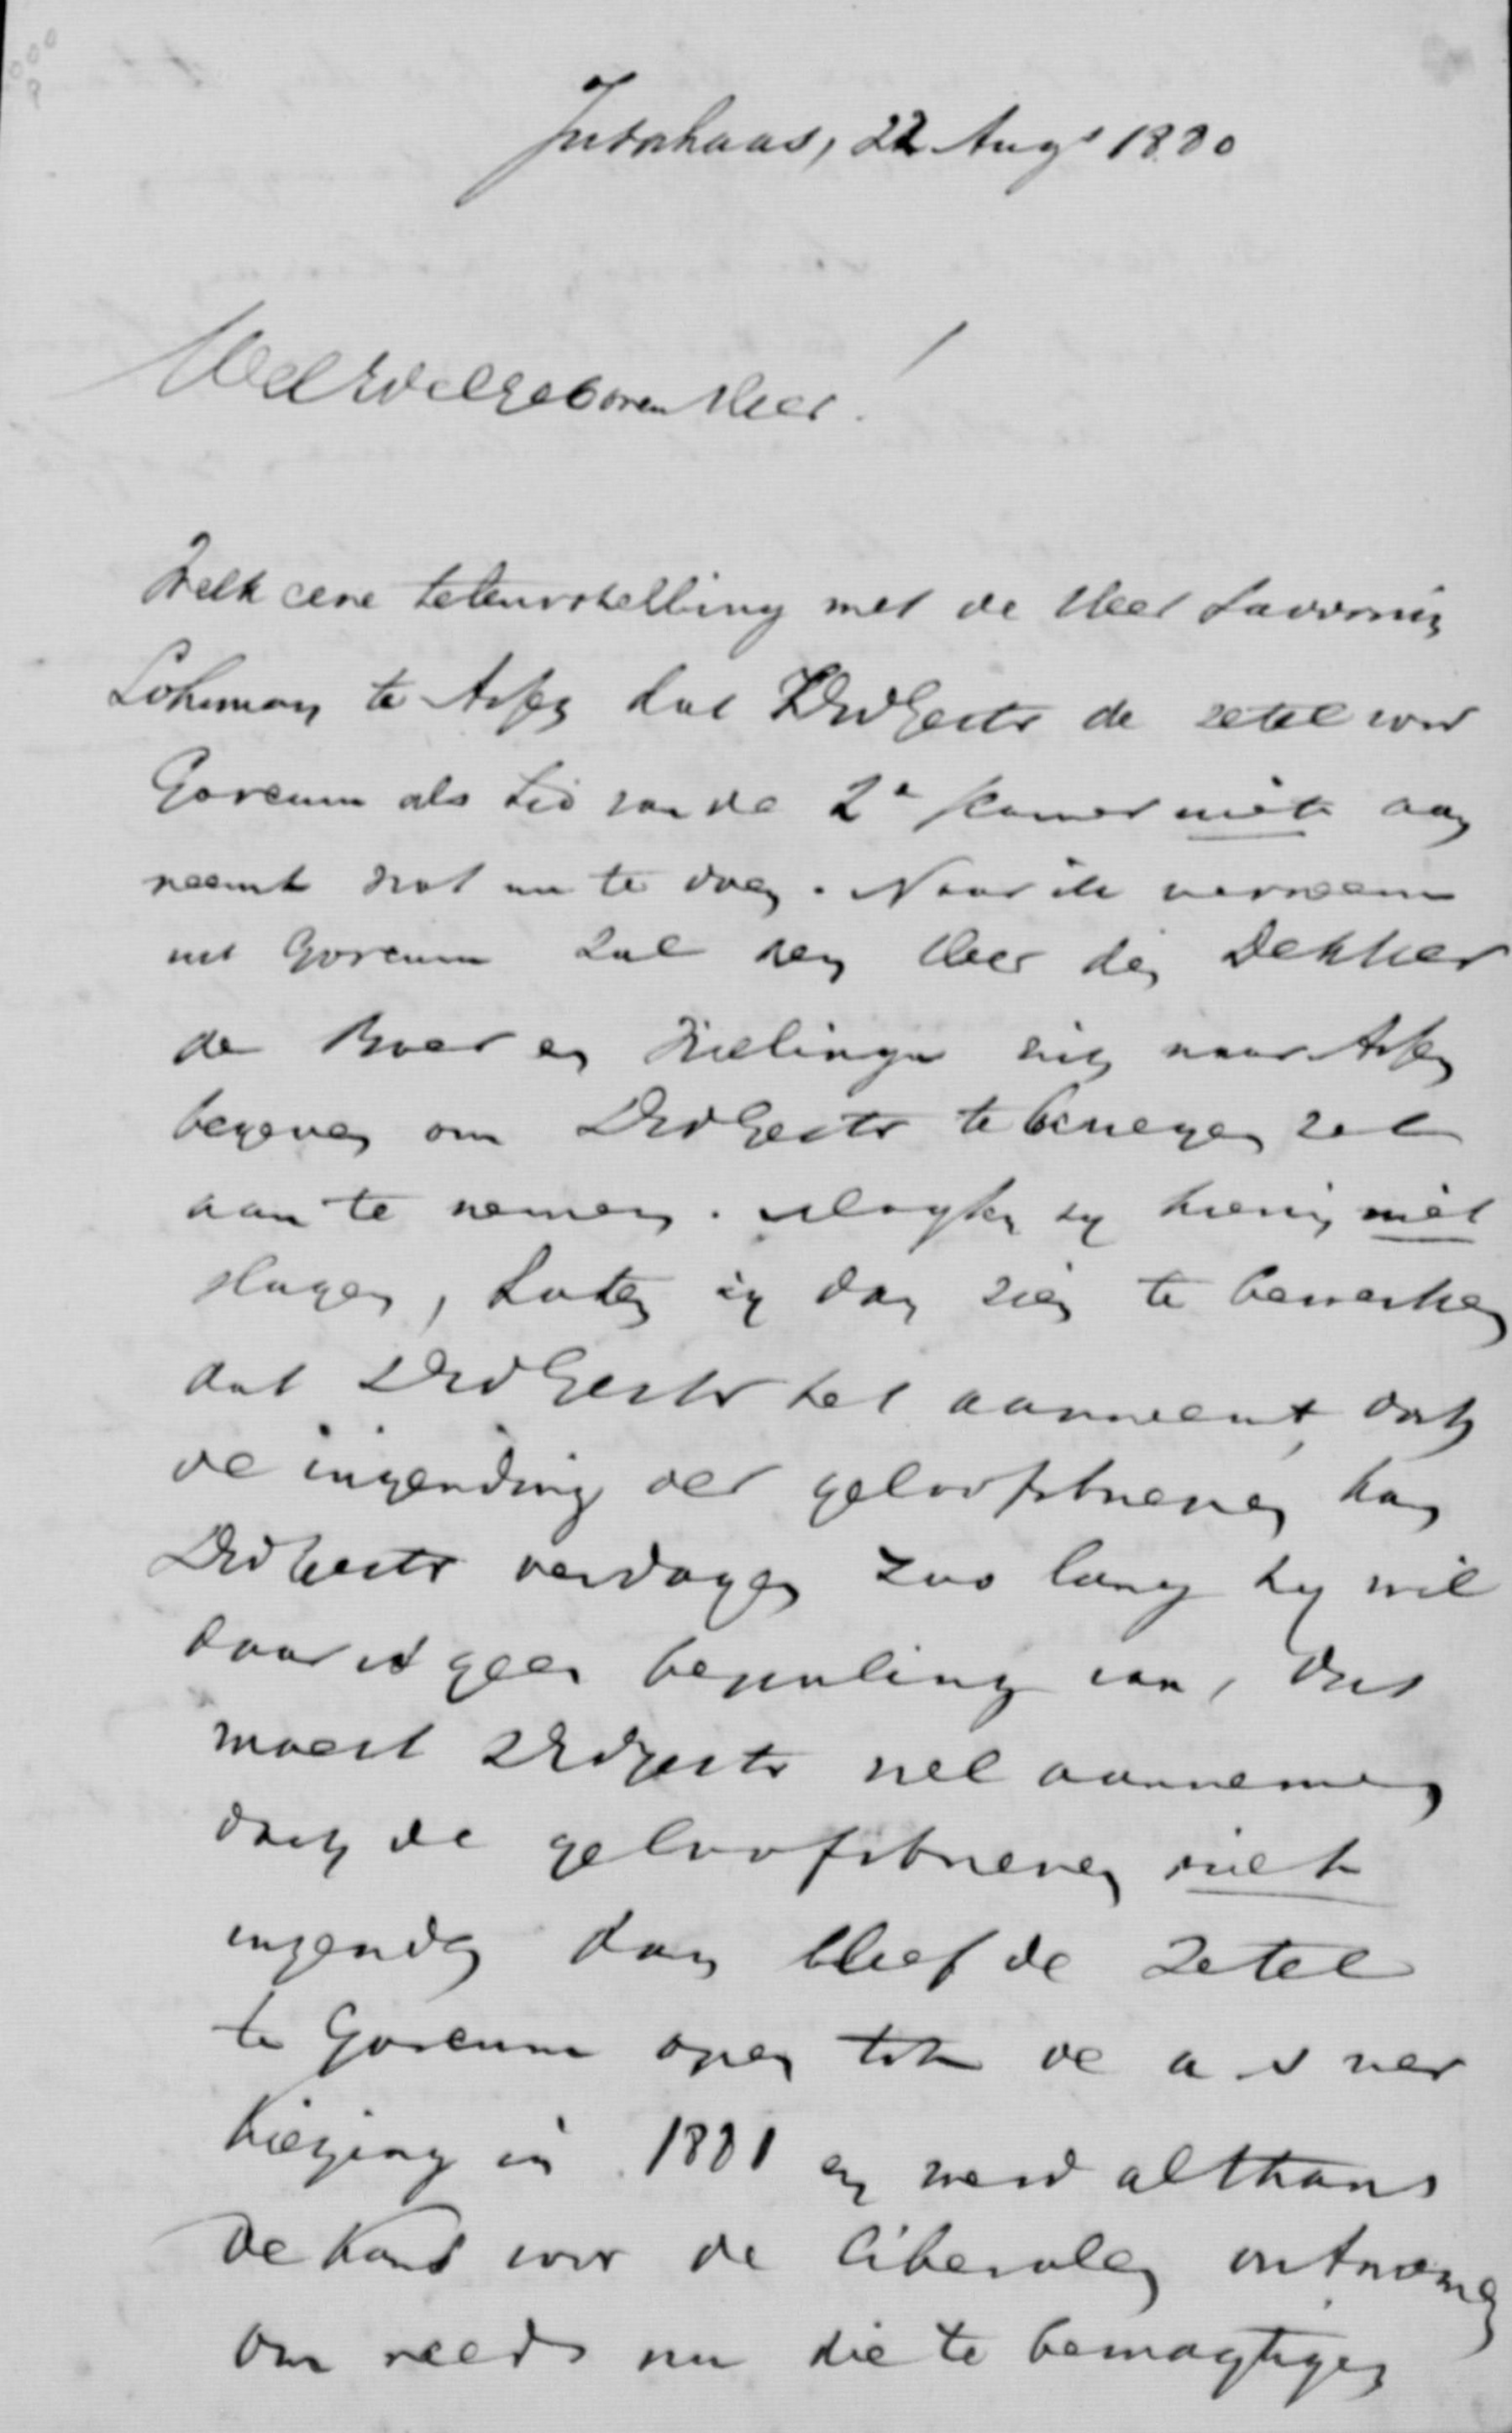 Jutphaas, 22 Augs 1880
WelEdelgeboren Heer!
Welk eene teleurstelling met de Heer Savornin
Lohman te Asten dat ZEdGestr de zetel voor
Gorcum als Lid van de 2e Kamer niet aan
neemt wat nu te doen. Naar ik verneem
uit Gorcum zal den Heer den Dekker
de Boer en zich naar Asten
begeven om ZEdGestr te bewegen zal
aan te nemen. Mogten zy hierin niet
slagen, laten zy dan zien te bewerken
dat ZEdGestr het aanneemt, doch
de inzending der geloofsbrieven kan
ZEdGestr verdagen zoo lang hy wil
daar is geen bepaling van, dus
moest ZEdGestr wel aannemen
doch de geloofsbrieven niet
inzenden dan bleef de zetel
te Gorcum open tot de a s ver
kiezing in 1881 en werd althans
de kans voor de liberalen ontnomen
om reeds nu die te bemagtigen